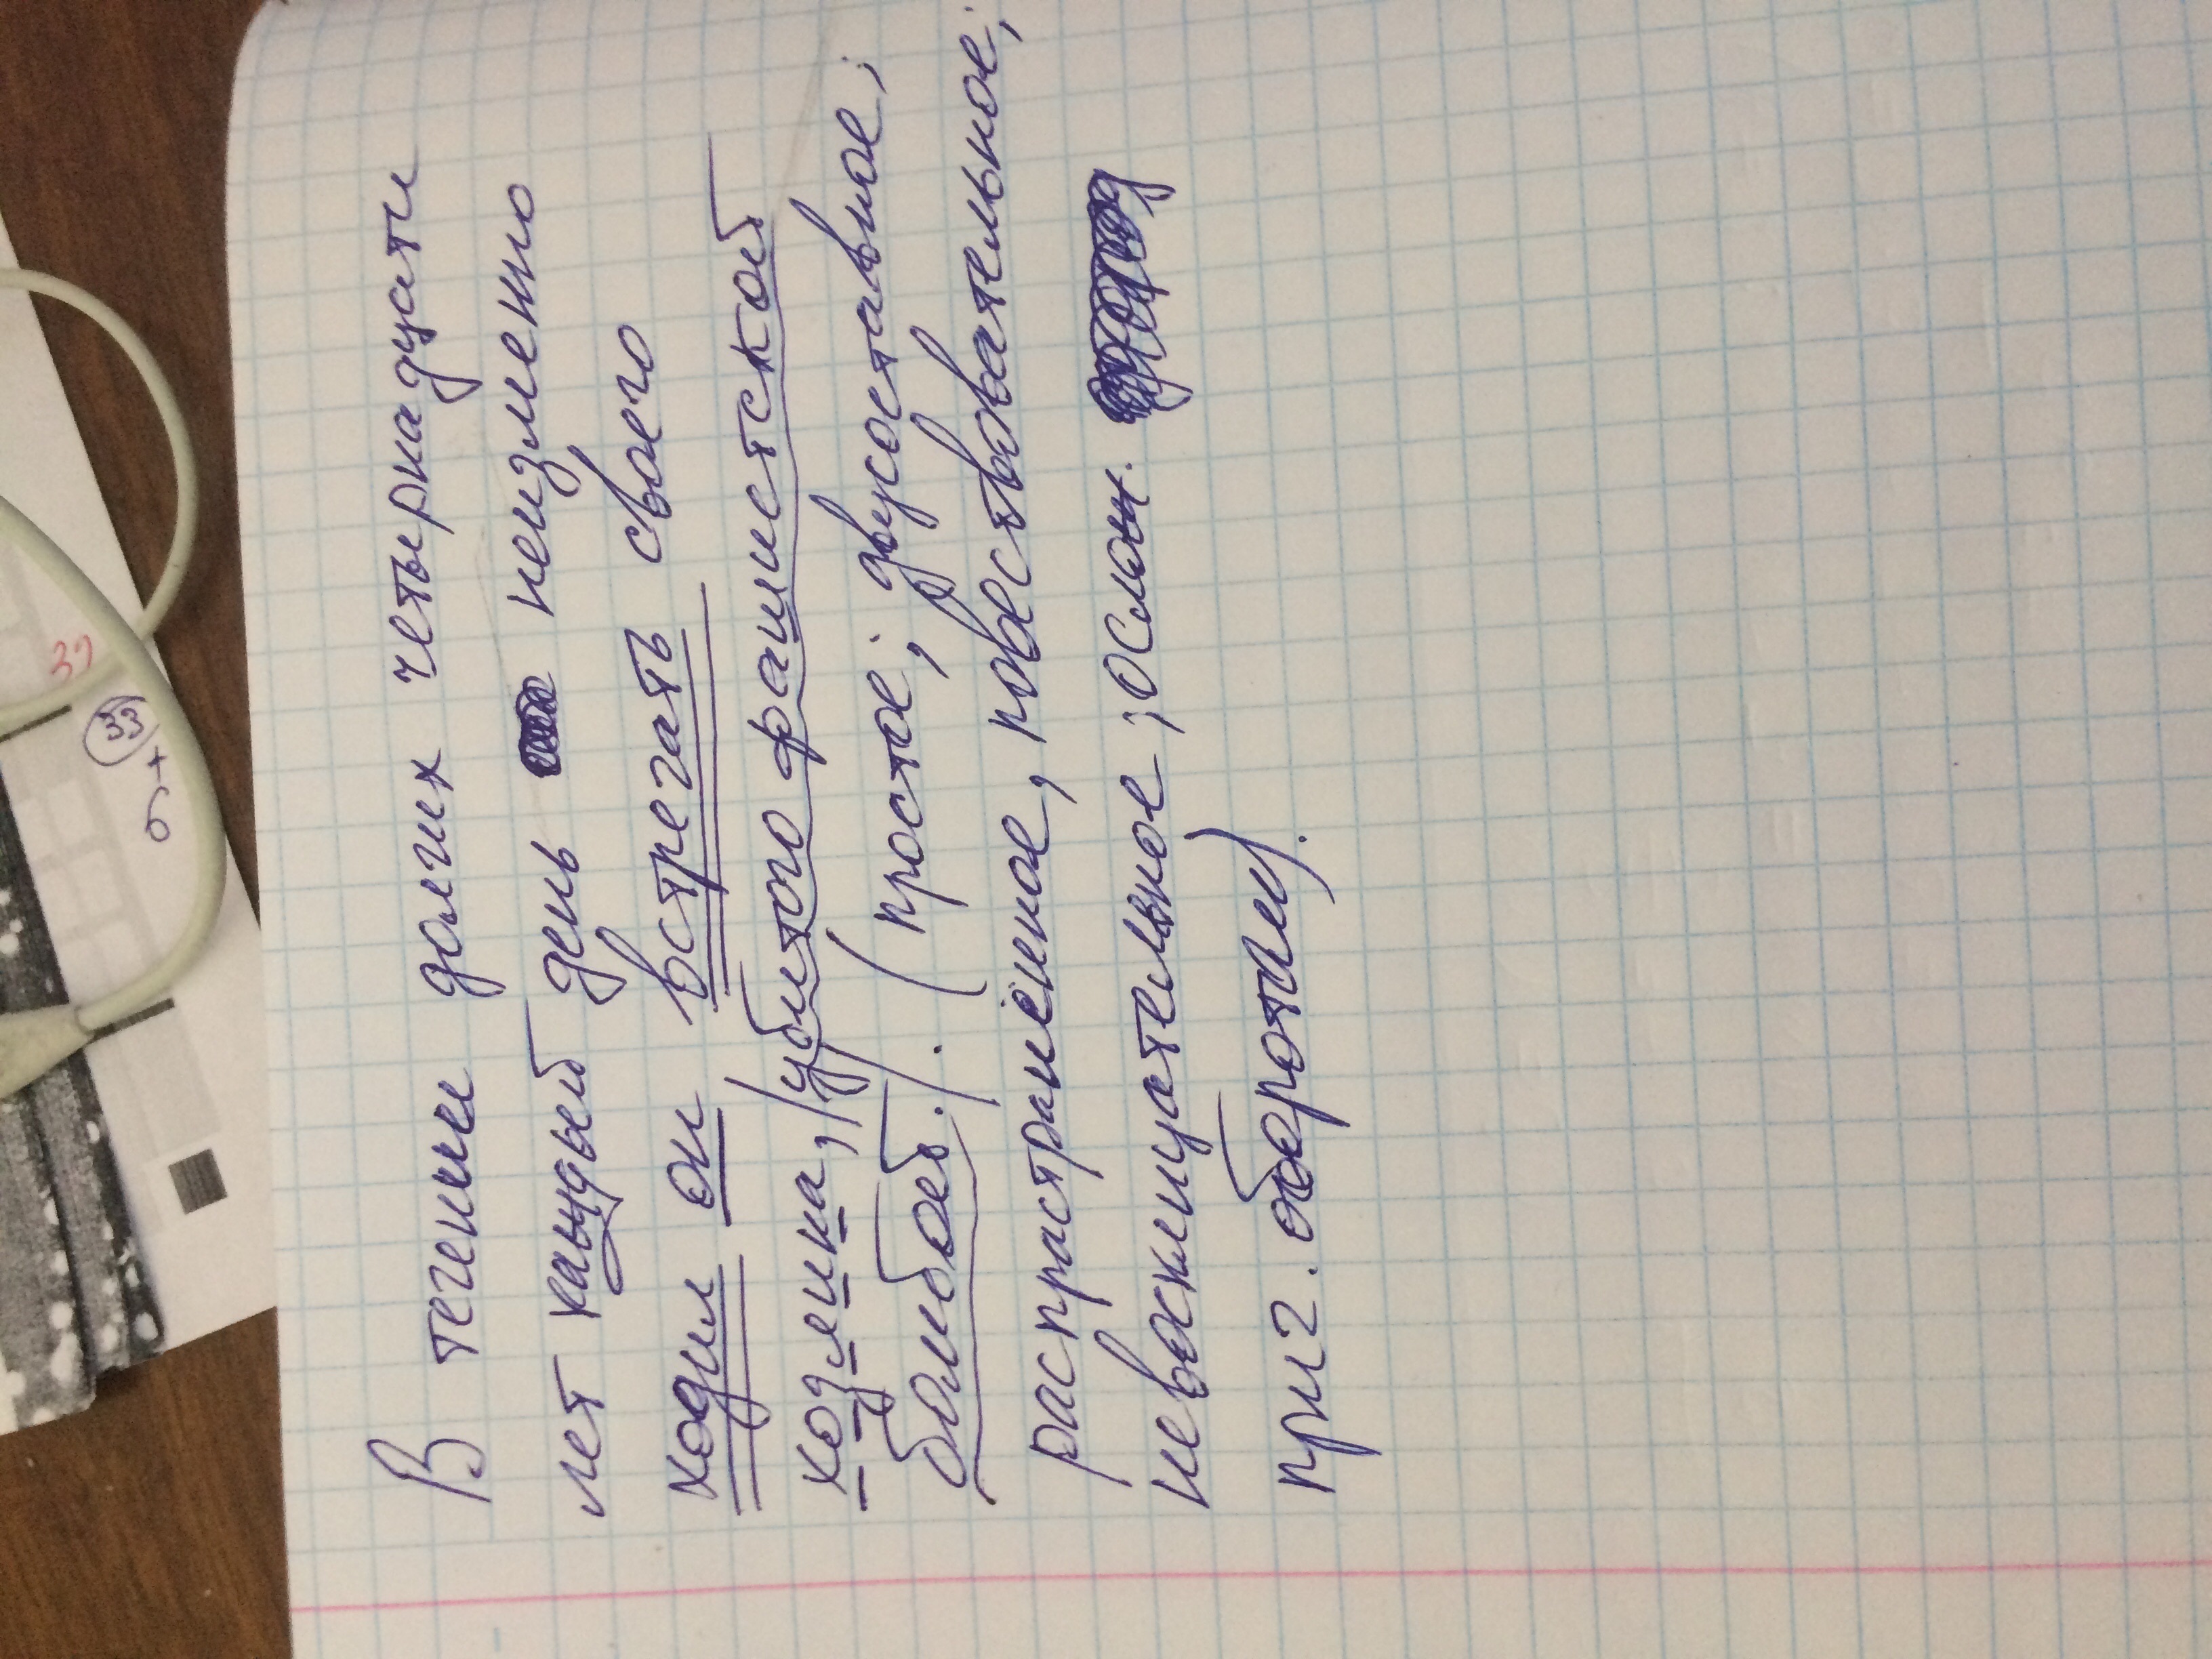 В течении долгих четырнадцати
лет каждый день неизменно
ходил он встречать своего
хозяина, убитого фашистской
бомбой. (простое; двусоставное;
распространённое, повествовательное;
невосклицательное; ослож.
прич. оборотом).
33